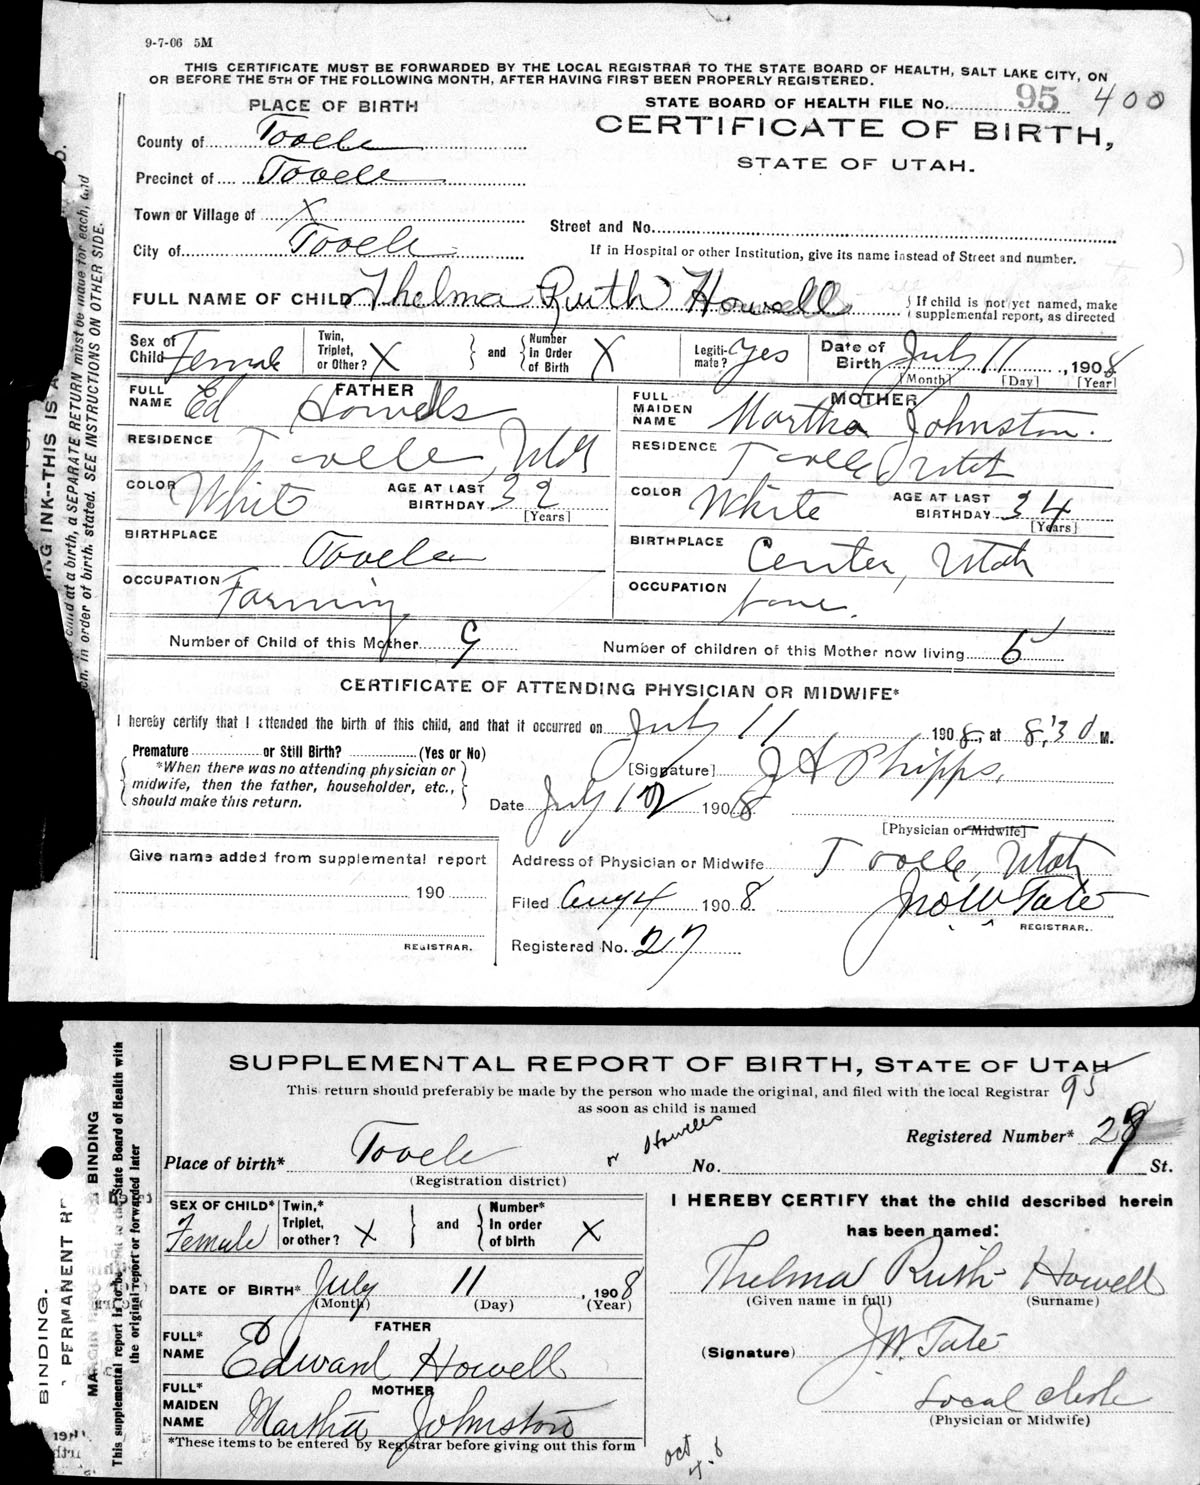 9-7-06 5M
THIS CERTIFICATE MUST BE FORWARDED BY THE LOCAL REGISTRAR TO THE STATE BOARD OF HEALTH, SALT LAKE CITY, ON
OR BEFORE THE 5TH OF THE FOLLOWING MONTH, AFTER HAVING FIRST BEEN PROPERLY REGISTERED.
PLACE OF BIRTH
STATE BOARD OF HEALTH FILE No. 95 400
CERTIFICATE OF BIRTH,
STATE OF UTAH.
County of Tooele
Precinct of Tooele
Town or Village of X
Street and No.
City of Tooele
If in Hospital or other Institution, give its name instead of Street and number.
FULL NAME OF CHILD Thelma Ruth Howell
If child is not yet named, make
supplemental report, as directed
Sex of Child Female
Twin, Triplet, or Other? X
and
Number in Order of Birth X
Legitimate? Yes
Date of Birth July 11, 1908
[Month] [Day] [Year]
FATHER
FULL NAME Ed Howells
RESIDENCE Tooele, Utah
COLOR White
AGE AT LAST BIRTHDAY 32
[Years]
BIRTHPLACE Tooele
OCCUPATION Farming
MOTHER
FULL MAIDEN NAME Martha Johnston.
RESIDENCE Tooele Utah
COLOR White
AGE AT LAST BIRTHDAY 34
[Years]
BIRTHPLACE Center, Utah
OCCUPATION none.
Number of Child of this Mother 9
Number of children of this Mother now living
CERTIFICATE OF ATTENDING PHYSICIAN OR MIDWIFE*
I hereby certify that I attended the birth of this child, and that it occurred on July 11 1908, at 8:30 M.
Premature or Still Birth? (Yes or No)
*When there was no attending physician or
midwife, then the father, householder, etc.,
should make this return.
[Signature] J A Phipps.
Date July 12 1908
[Physician or Midwife]
Give name added from supplemental report
190
REGISTRAR.
Address of Physician or Midwife Tooele, Utah
Filed Aug 4 1908 Jno W Tate
REGISTRAR.
Registered No. 27
SEE INSTRUCTIONS ON OTHER SIDE.
SUPPLEMENTAL REPORT OF BIRTH, STATE OF UTAH
This return should preferably be made by the person who made the original, and filed with the local Registrar
as soon as child is named
95
Registered Number*
Place of birth* Tooele
(Registration district)
or Howells
No. St.
SEX OF CHILD* Female
Twin,* Triplet, or other? X
and
Number* in order of birth X
DATE OF BIRTH* July 11, 1908
(Month) (Day) (Year)
FATHER
FULL* NAME Edward Howell
MOTHER
FULL* MAIDEN NAME Martha Johnston
*These items to be entered by Registrar before giving out this form
I HEREBY CERTIFY that the child described herein
has been named:
Thelma Ruth Howell
(Given name in full) (Surname)
(Signature) J.W. Tate
Local clerk
(Physician or Midwife)
BINDING.
BINDING
the original report or forwarded later